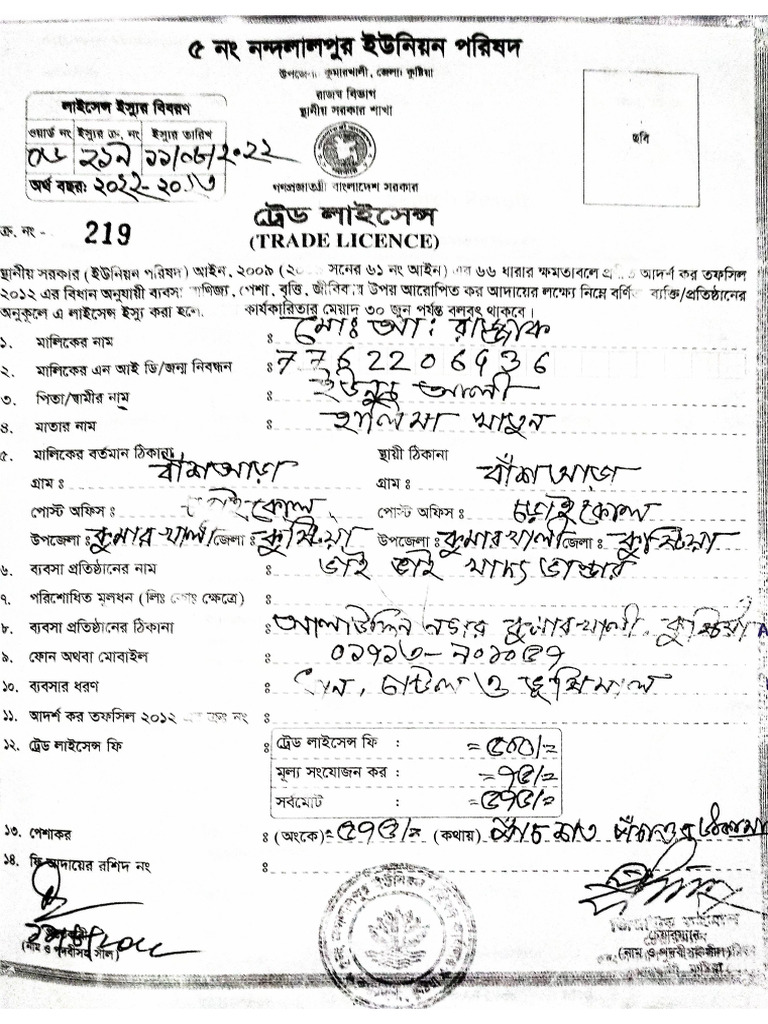 ৫ নং নন্দলালপুর ইউনিয়ন পরিষদ
উপজেলা: কুমারখালী, জেলা: কুষ্টিয়া
রাজস্ব বিভাগ
স্থানীয় সরকার শাখা
লাইসেন্স ইস্যুর বিবরণ
ওয়ার্ড নং ইস্যুর ক্র. নং ইস্যুর তারিখ
০৬ ২১৯ ১১/০৮/২০২২
অর্থ বছর: ২০২২-২০২৩
ছবি
গণপ্রজাতন্ত্রী বাংলাদেশ সরকার
ট্রেড লাইসেন্স
(TRADE LICENCE)
ক্র. নং - 219
স্থানীয় সরকার (ইউনিয়ন পরিষদ) আইন, ২০০৯ (২০ সনের ৬১ নং আইন) এর ৬৬ ধারার ক্ষমতাবলে আদর্শ কর তফসিল
২০১২ এর বিধান অনুযায়ী ব্যবসা, বাণিজ্য, পেশা, বৃত্তি, জীবিকার উপর আরোপিত কর আদায়ের লক্ষ্যে নিম্নে বর্ণিত ব্যক্তি/প্রতিষ্ঠানের
অনুকূলে এ লাইসেন্স ইস্যু করা হলো। কার্যকারিতার মেয়াদ ৩০ জুন পর্যন্ত বলবৎ থাকবে।
১. মালিকের নাম ঃ মোঃ আঃ রাজ্জাক
২. মালিকের এন আই ডি/জন্ম নিবন্ধন ঃ 7762206936
৩. পিতা/স্বামীর নাম ঃ ইউনুছ আলী
৪. মাতার নাম ঃ হালিমা খাতুন
৫. মালিকের বর্তমান ঠিকানা স্থায়ী ঠিকানা
গ্রাম ঃ বাঁশআড়া গ্রাম ঃ বাঁশআড়া
পোস্ট অফিস ঃ পোস্ট অফিস ঃ চড়াইকোল
উপজেলা ঃ কুমারখালী জেলা ঃ কুষ্টিয়া উপজেলা ঃ কুমারখালী জেলা ঃ কুষ্টিয়া
৬. ব্যবসা প্রতিষ্ঠানের নাম ঃ ভাই ভাই খাদ্য ভান্ডার
৭. পরিশোধিত মূলধন (লিঃ ক্ষেত্রে) ঃ
৮. ব্যবসা প্রতিষ্ঠানের ঠিকানা ঃ আলাউদ্দিন নগর কুমারখালী, কুষ্টিয়া
৯. ফোন অথবা মোবাইল ঃ
১০. ব্যবসার ধরণ ঃ ধান, চাউল ও ভূষিমাল
১১. আদর্শ কর তফসিল ২০১২ নং ঃ
১২. ট্রেড লাইসেন্স ফি ঃ ট্রেড লাইসেন্স ফি : =৫০০/=
মূল্য সংযোজন কর : =৭৫/=
সর্বমোট : =৫৭৫/=
১৩. পেশাকর ঃ (অংকে)=৫৭৫/= (কথায়) পাঁচ শত পঁচাত্তর টাকা মাত্র
১৪. ফি আদায়ের রশিদ নং ঃ
(নাম ও পদবীসহ সীল)
চেয়ারম্যান
(নাম ও পদবীসহ সীল)